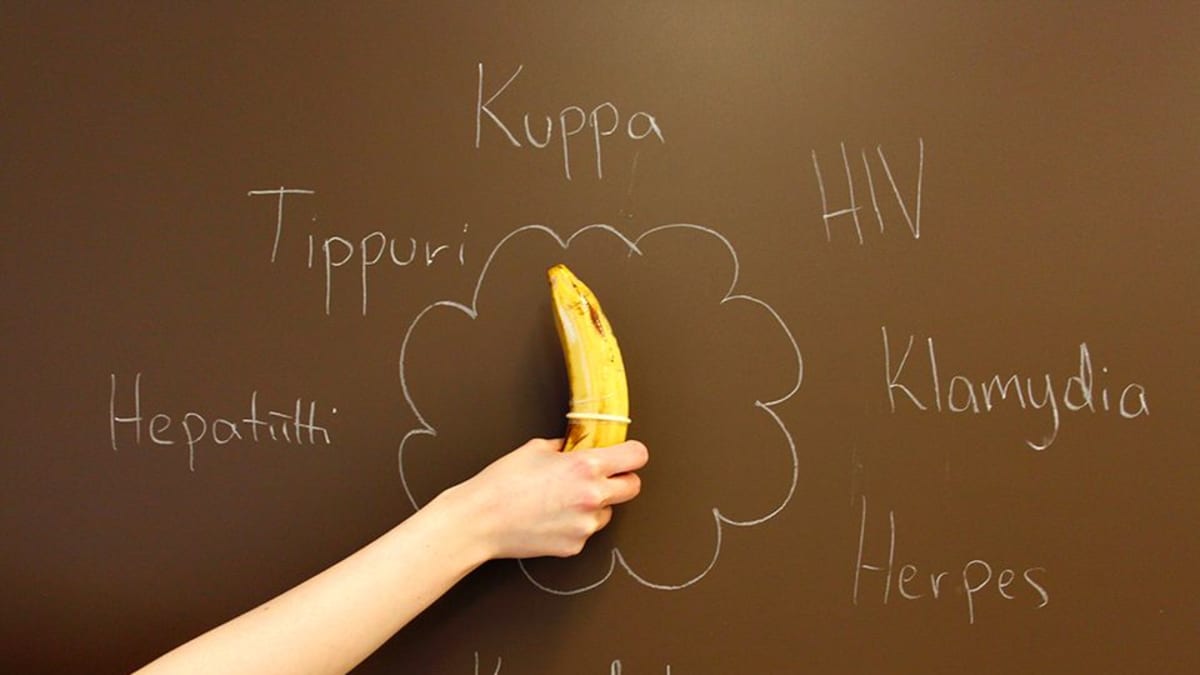 Kuppa
HIV
Tippuri
Klamydia
Hepatiitti
Herpes